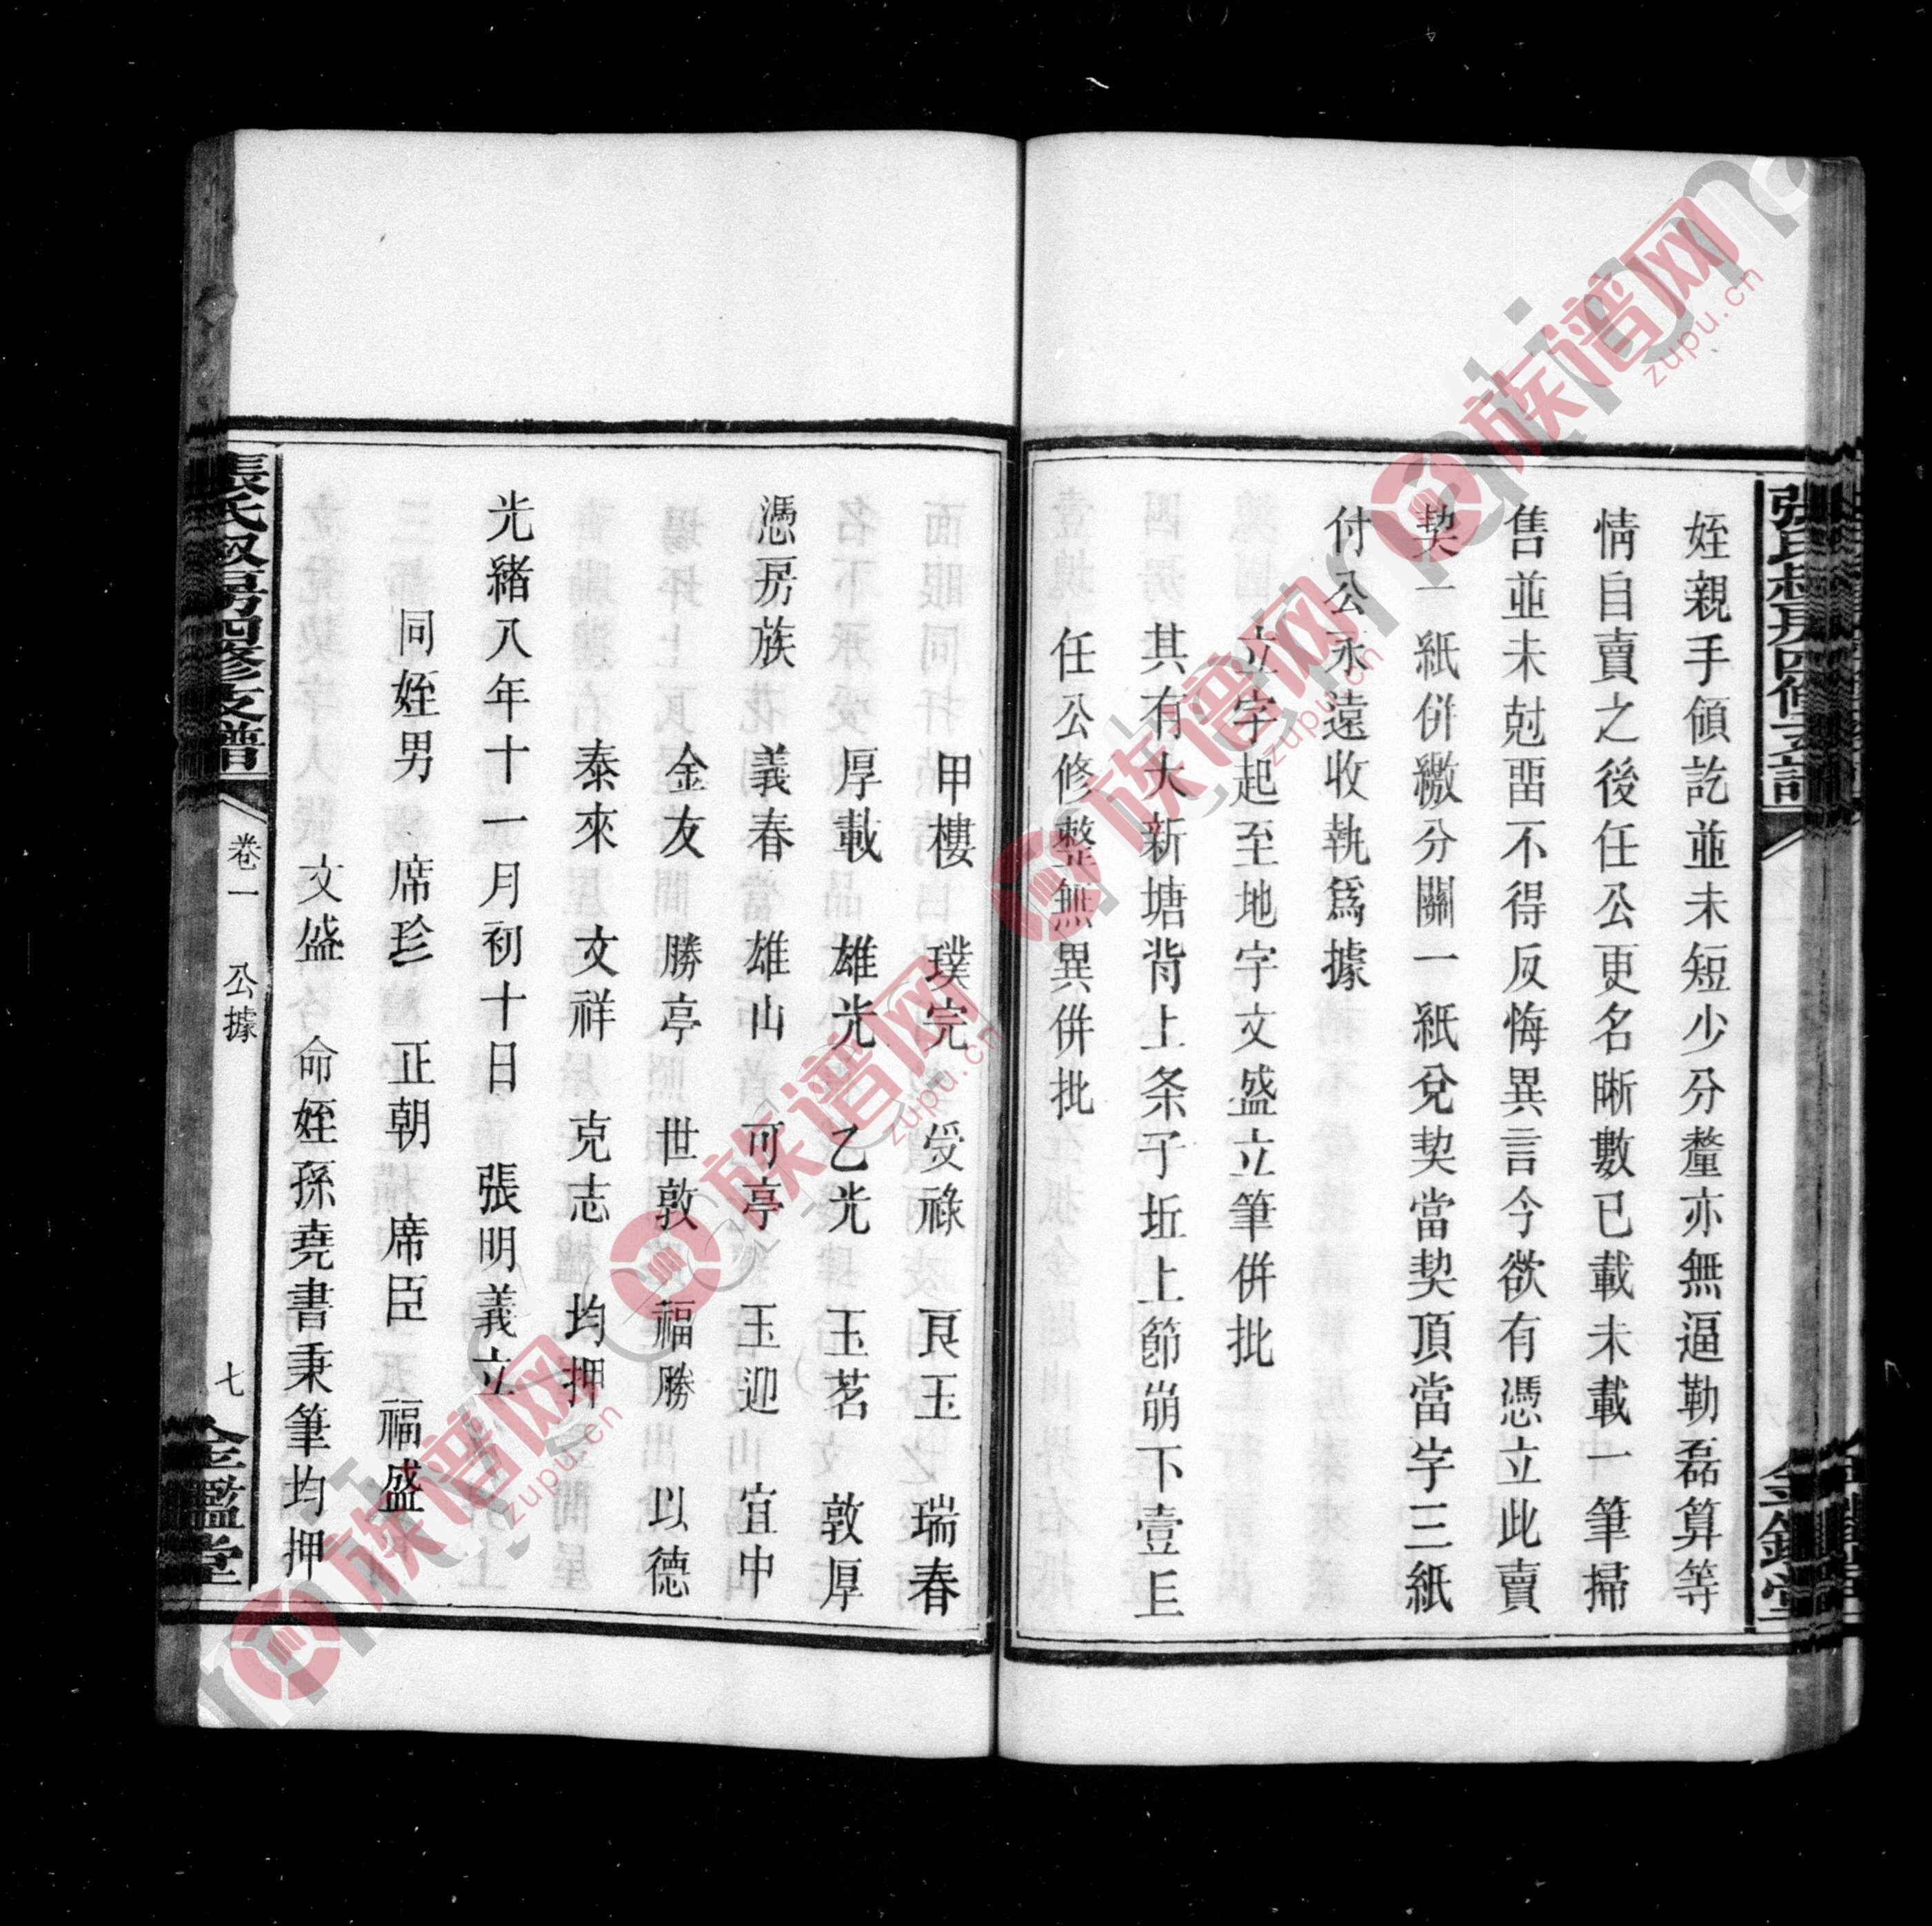 姪親手領訖並未短少分釐亦無逼勒磊算等
情自賣之後任公更名晰數已載未載一筆掃
售並未尅畱不得反悔異言今欲有憑立此賣
契一紙併繳分關一紙兌契當契頂當字三紙
付公永遠收執爲據
立字起至地字文盛立筆併批
其有大新塘背上条子坵上節崩下壹上
任公修整無異併批
甲樓 璞完 受祿 艮玉 瑞春
厚載 雄光 乙光 玉茗 敦厚
憑房族 義春 雄山 可亭 玉迎 宜中
金友 勝亭 世敦 福勝 以德
泰來 文祥 克志 均押
光緒八年十一月初十日 張明義立
同姪男 席珍 正朝 席臣 福盛
文盛 命姪孫堯書秉筆均押
張氏叔房四修支譜 卷一 公據 七 金鑑堂
族谱网
zupu.cn
族谱网
zupu.cn
族谱网
zupu.cn
族谱网
zupu.cn